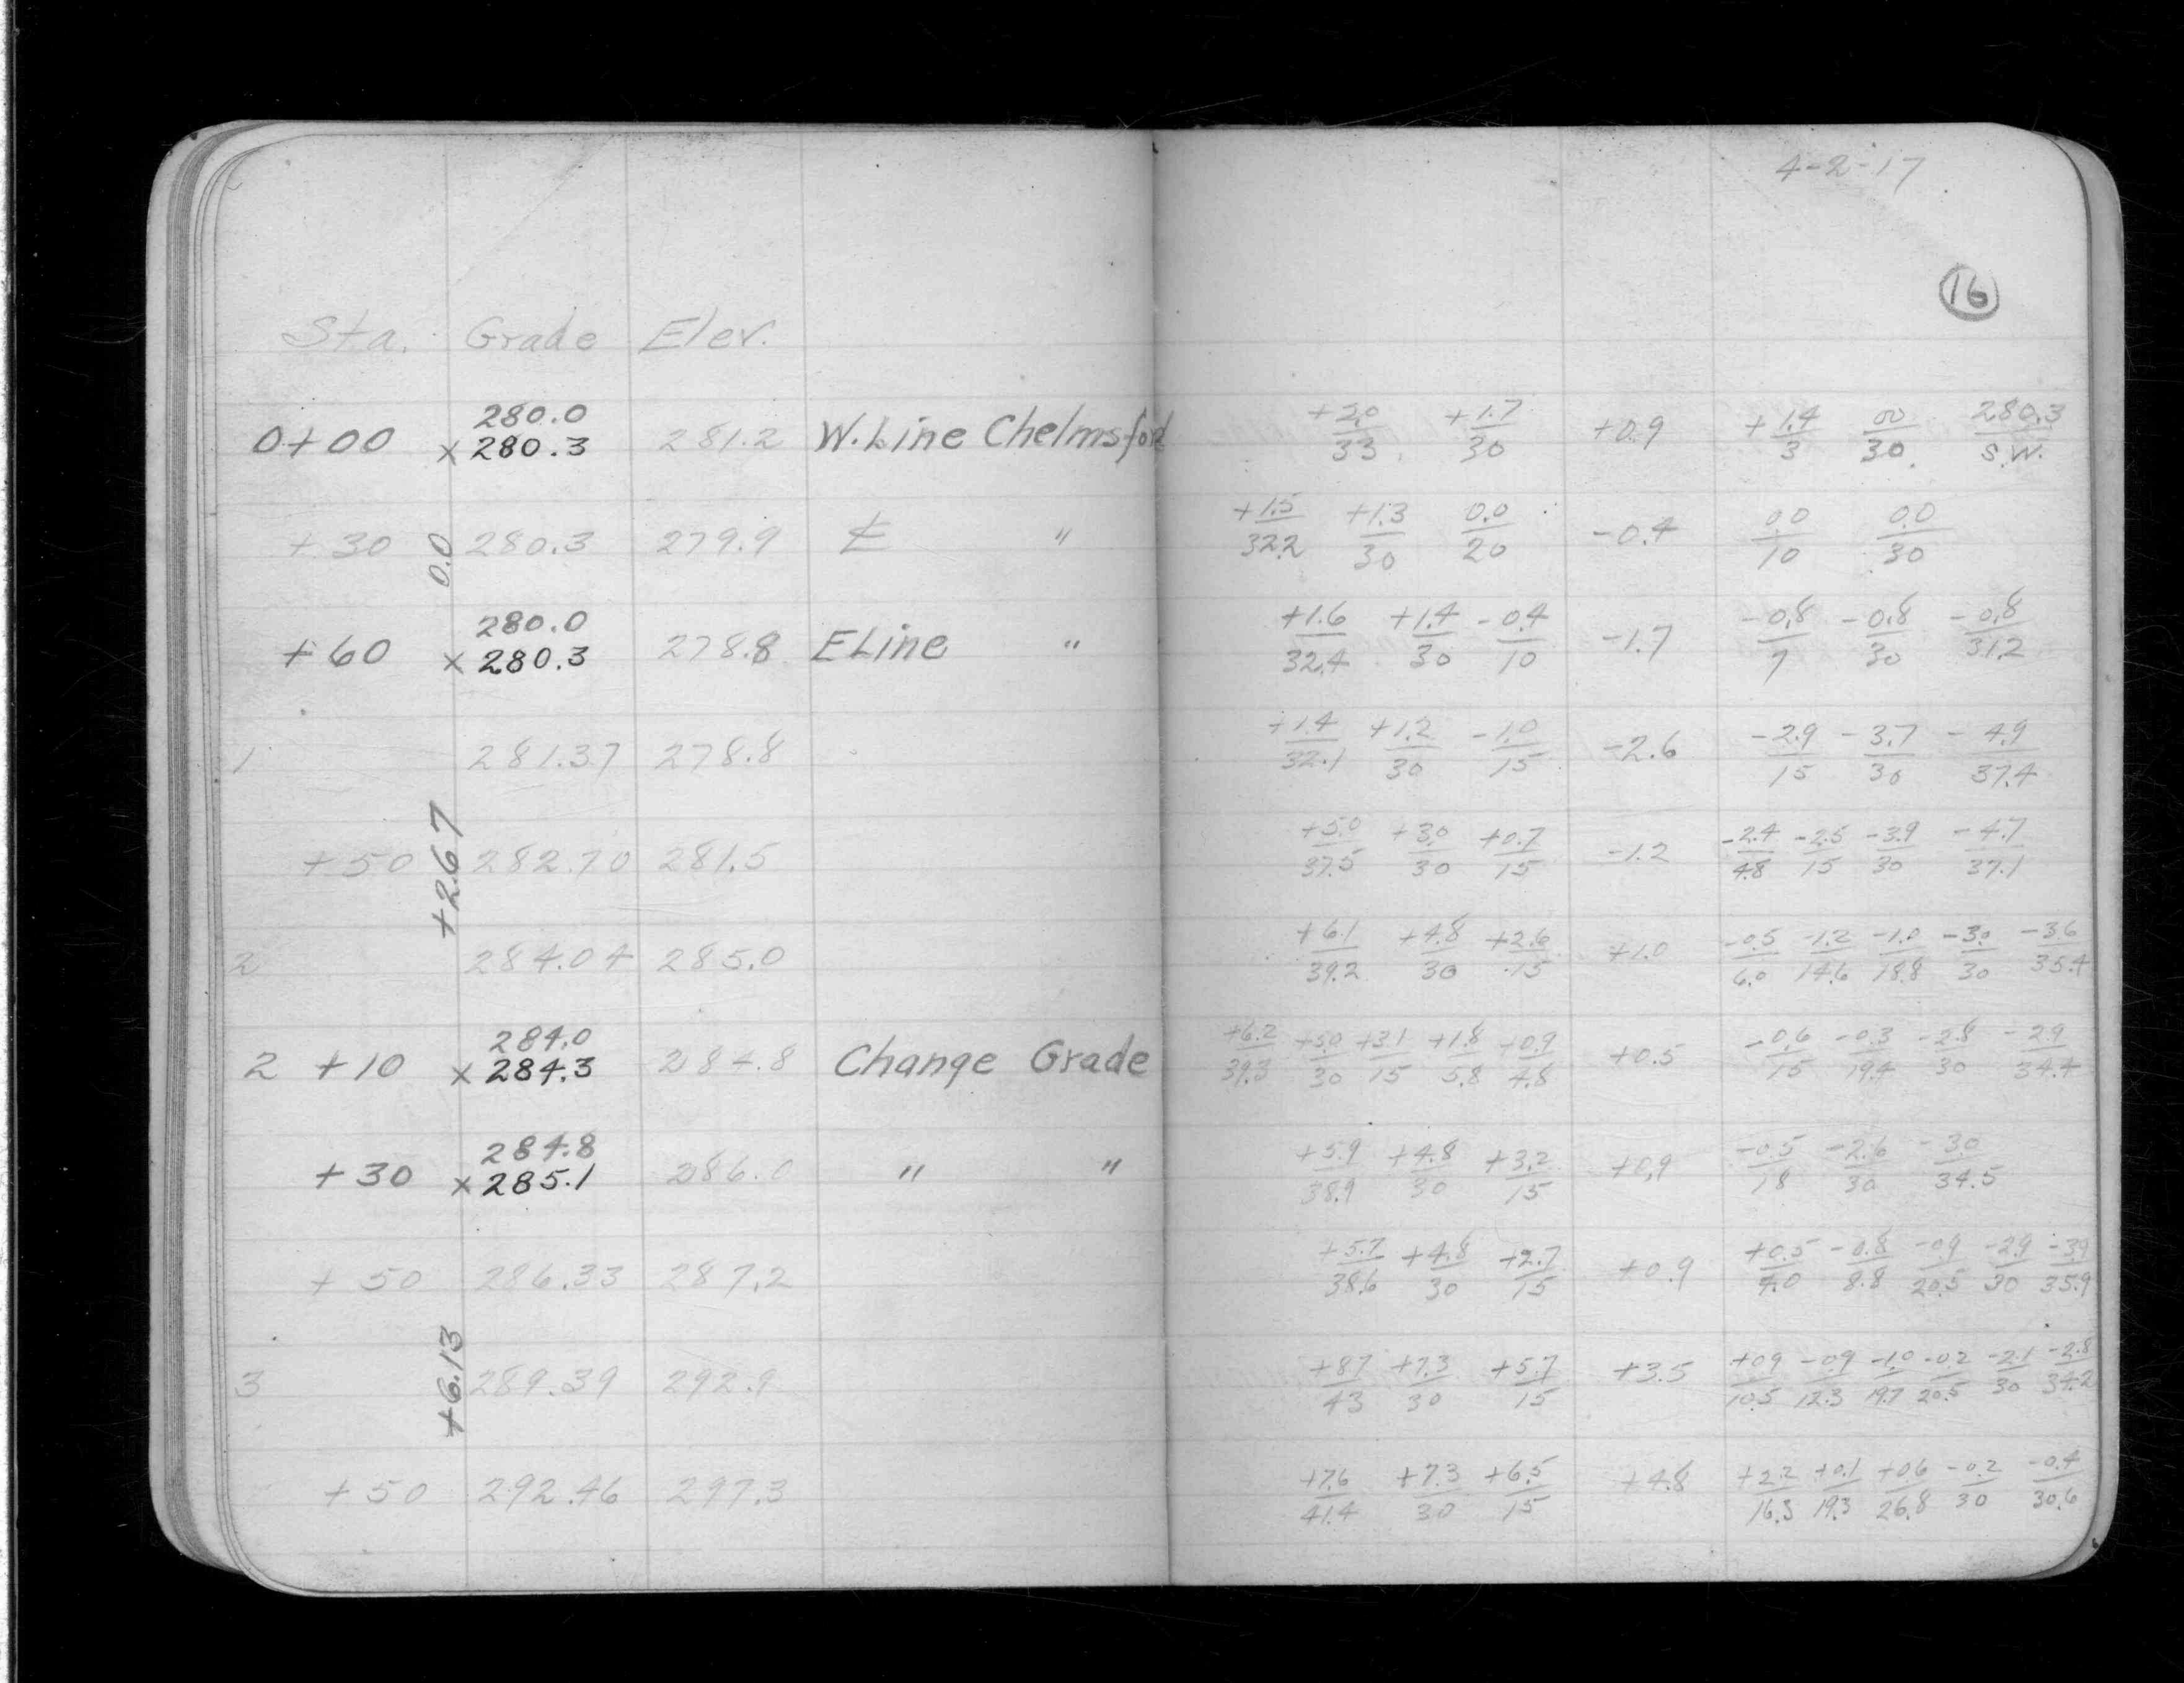 4-2-17
16
Sta. Grade Elev.
280.0
0+00 x 280.3 281.2 W. Line Chelmsford +2.0/33 +1.7/30 +0.9 +1.4/3 00/30 280.3/S.W.
+30 280.3 279.9 ℄ " +1.5/32.2 +1.3/30 0.0/20 -0.4 0.0/10 0.0/30
0.0
280.0
+60 x 280.3 278.8 E Line " +1.6/32.4 +1.4/30 -0.4/10 -1.7 -0.8/7 -0.8/30 -0.8/31.2
1 281.37 278.8 +1.4/32.1 +1.2/30 -1.0/15 -2.6 -2.9/15 -3.7/30 -4.9/37.4
+2.67
+50 282.70 281.5 +5.0/37.5 +3.0/30 +0.7/15 -1.2 -2.4/4.8 -2.5/15 -3.9/30 -4.7/37.1
2 284.04 285.0 +6.1/39.2 +4.8/30 +2.6/15 +1.0 -0.5/6.0 -1.2/14.6 -1.0/18.8 -3.0/30 -3.6/35.4
284.0
2 +10 x 284.3 284.8 Change Grade +6.2/39.3 +5.0/30 +3.1/15 +1.8/5.8 +0.9/4.8 +0.5 -0.6/15 -0.3/19.4 -2.8/30 -2.9/34.4
284.8
+30 x 285.1 286.0 " " +5.9/38.9 +4.8/30 +3.2/15 +0.9 -0.5/18 -2.6/30 -3.0/34.5
+50 286.33 287.2 +5.7/38.6 +4.8/30 +2.7/15 +0.9 +0.5/4.0 -0.8/8.8 -0.9/20.5 -2.9/30 -3.9/35.9
+6.13
3 289.39 292.9 +8.7/43 +7.3/30 +5.7/15 +3.5 +0.9/10.5 -0.9/12.3 -1.0/19.7 -0.2/20.5 -2.1/30 -2.8/34.2
+50 292.46 297.3 +7.6/41.4 +7.3/30 +6.5/15 +4.8 +2.2/16.3 +0.1/19.3 +0.6/26.8 -0.2/30 -0.4/30.6